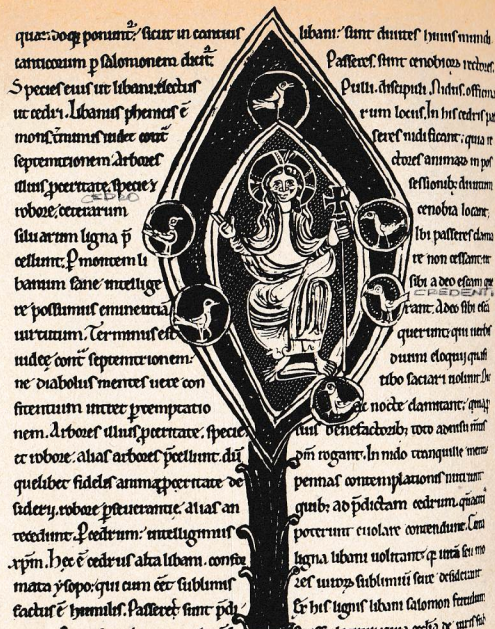 quandoq; ponunt᷑. sicut in canticis
canticorum p salomonem dicit᷑.
Species eius ut libani: electus
ut cedri. Libanus phenicis ē
mons t̄minus iudee cont̄
septemtrionem. Arbores
illius pceritate, specie &
CEDRO
robore, ceterarum
siluarum ligna p̄
cellunt. P montem li
banum sane intellige
re possumus eminentiā
uirtutum. Terminus est
iudeę cont̄ septemtrionem:
ne diabolus mentes uere con
fitentium intret p temptatio
nem. Arbores illius pceritate, specie
et robore. alias arbores p̄cellunt. dū
quelibet fidelis anima pceritate de
siderii, robore pseuerantie, alias an
tecedunt. P cedrum: intelligimus
xp̄m. Hec ē cedrus alta libani. confir
mata ysopo: qui cum eēt sublimis
factus ē humilis. Passeres sunt p̄di
libani: sunt diuites huius mundi
Passeres. sunt cenobiorū rectores.
Pulli. discipuli. Nidus. officina
rum locus. In his cedris pas
seres nidificant: quia
ctores animarū in pos
sessionib; diuitum
cenobia locant.
Ibi passeres clama
re non cessant: ut
sibi a deo escam que
CREDENTI
rant. A deo sibi escā
querunt: qui uerbi
diuini eloquii
cibo saciari
et nocte clamitant:
suis benefactorib; toto adnisu
dm̄ rogant. In nido tranquille mentis
pennas contemplationis nutriunt
quib; ad p̄dictam cedrum,
poterunt euolare contendunt.
ligna libani uolitant:
res uitorū sublimiū scire desiderant.
Ex his lignis libani salomon